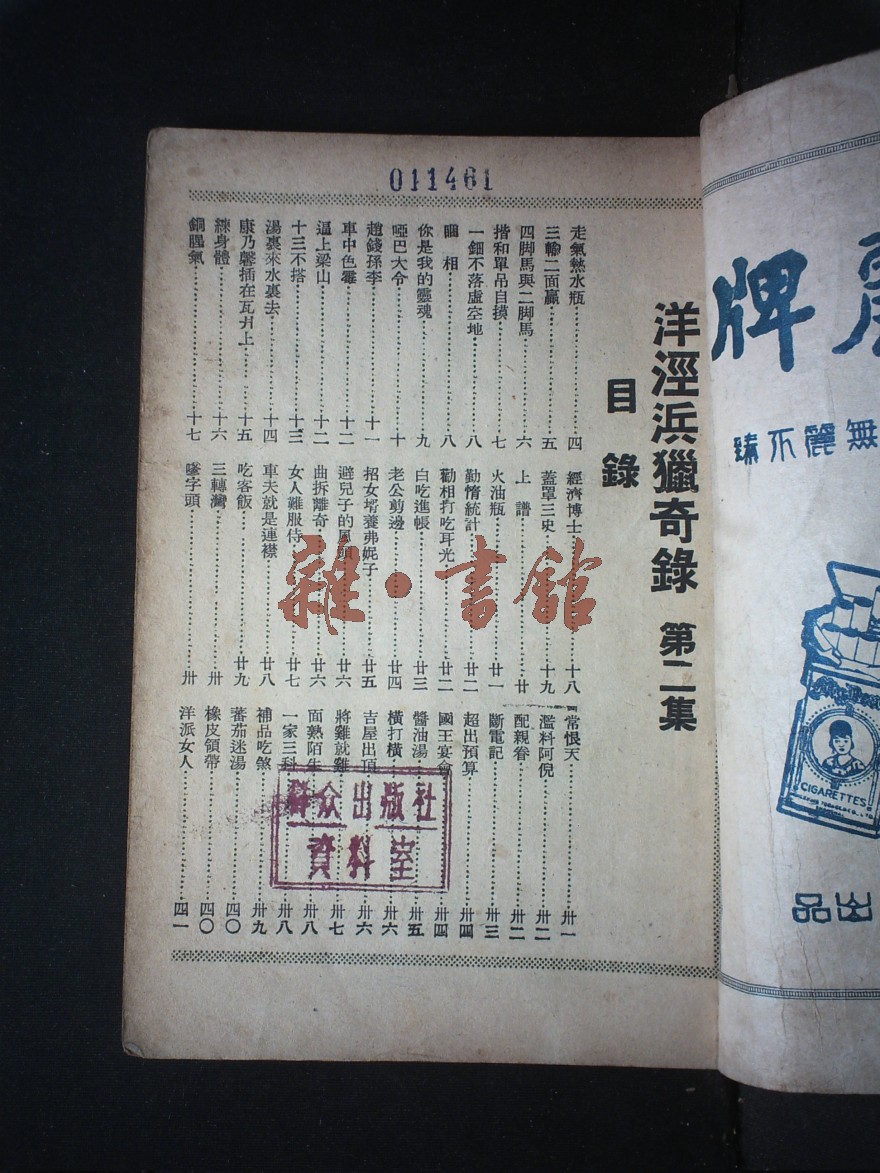 011461
洋涇浜獵奇錄 第二集
目錄
走氣熱水瓶………四
三輸二面贏………五
四脚馬與二脚馬………六
揩和單吊自摸………七
一鈿不落虛空地………八
相………八
你是我的靈魂………九
啞巴大令………十
趙錢孫李………十一
車中色霉………十二
逼上梁山………十二
十三不搭………十三
湯裏來水裏去………十四
康乃馨插在瓦爿上………十五
練身體………十六
銅腥氣………十七
經濟博士………十八
蓋罩三史………十九
上譜………廿
火油瓶………廿一
勤惰統計………廿二
勸相打吃耳光………廿二
白吃進帳………廿三
老公剪邊………廿四
招女壻養弗妮子………廿五
避兒子的風頭………廿六
曲折離奇………廿六
女人難服侍………廿七
車夫就是連襟………廿八
吃客飯………廿九
三轉灣………卅
嗲字頭………卅
常恨天………卅一
濫料阿倪………卅二
配親眷………卅二
斷電記………卅三
超出預算………卅四
國王宴會………卅四
醬油湯………卅五
橫打橫………卅六
吉屋出頂………卅六
將雞就雞………卅七
面熟陌生………卅八
一家三科………卅八
補品吃煞………卅九
蕃茄迷湯………四〇
橡皮領帶………四〇
洋派女人………四一
群众出版社
資料室
雜·書館
牌
無麗不臻
CIGARETTES
出品